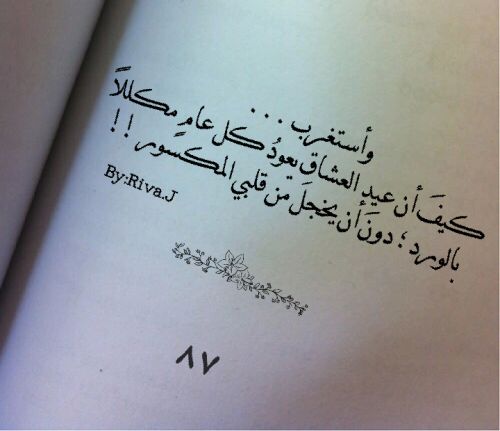 وأستغرب...
كيفَ أن عيد العشاق يعودُ كل عامٍ مكللاً
بالورد ؛ دونَ أن يخجلَ من قلبي المكسور !!
By:Riva.J
٨٧